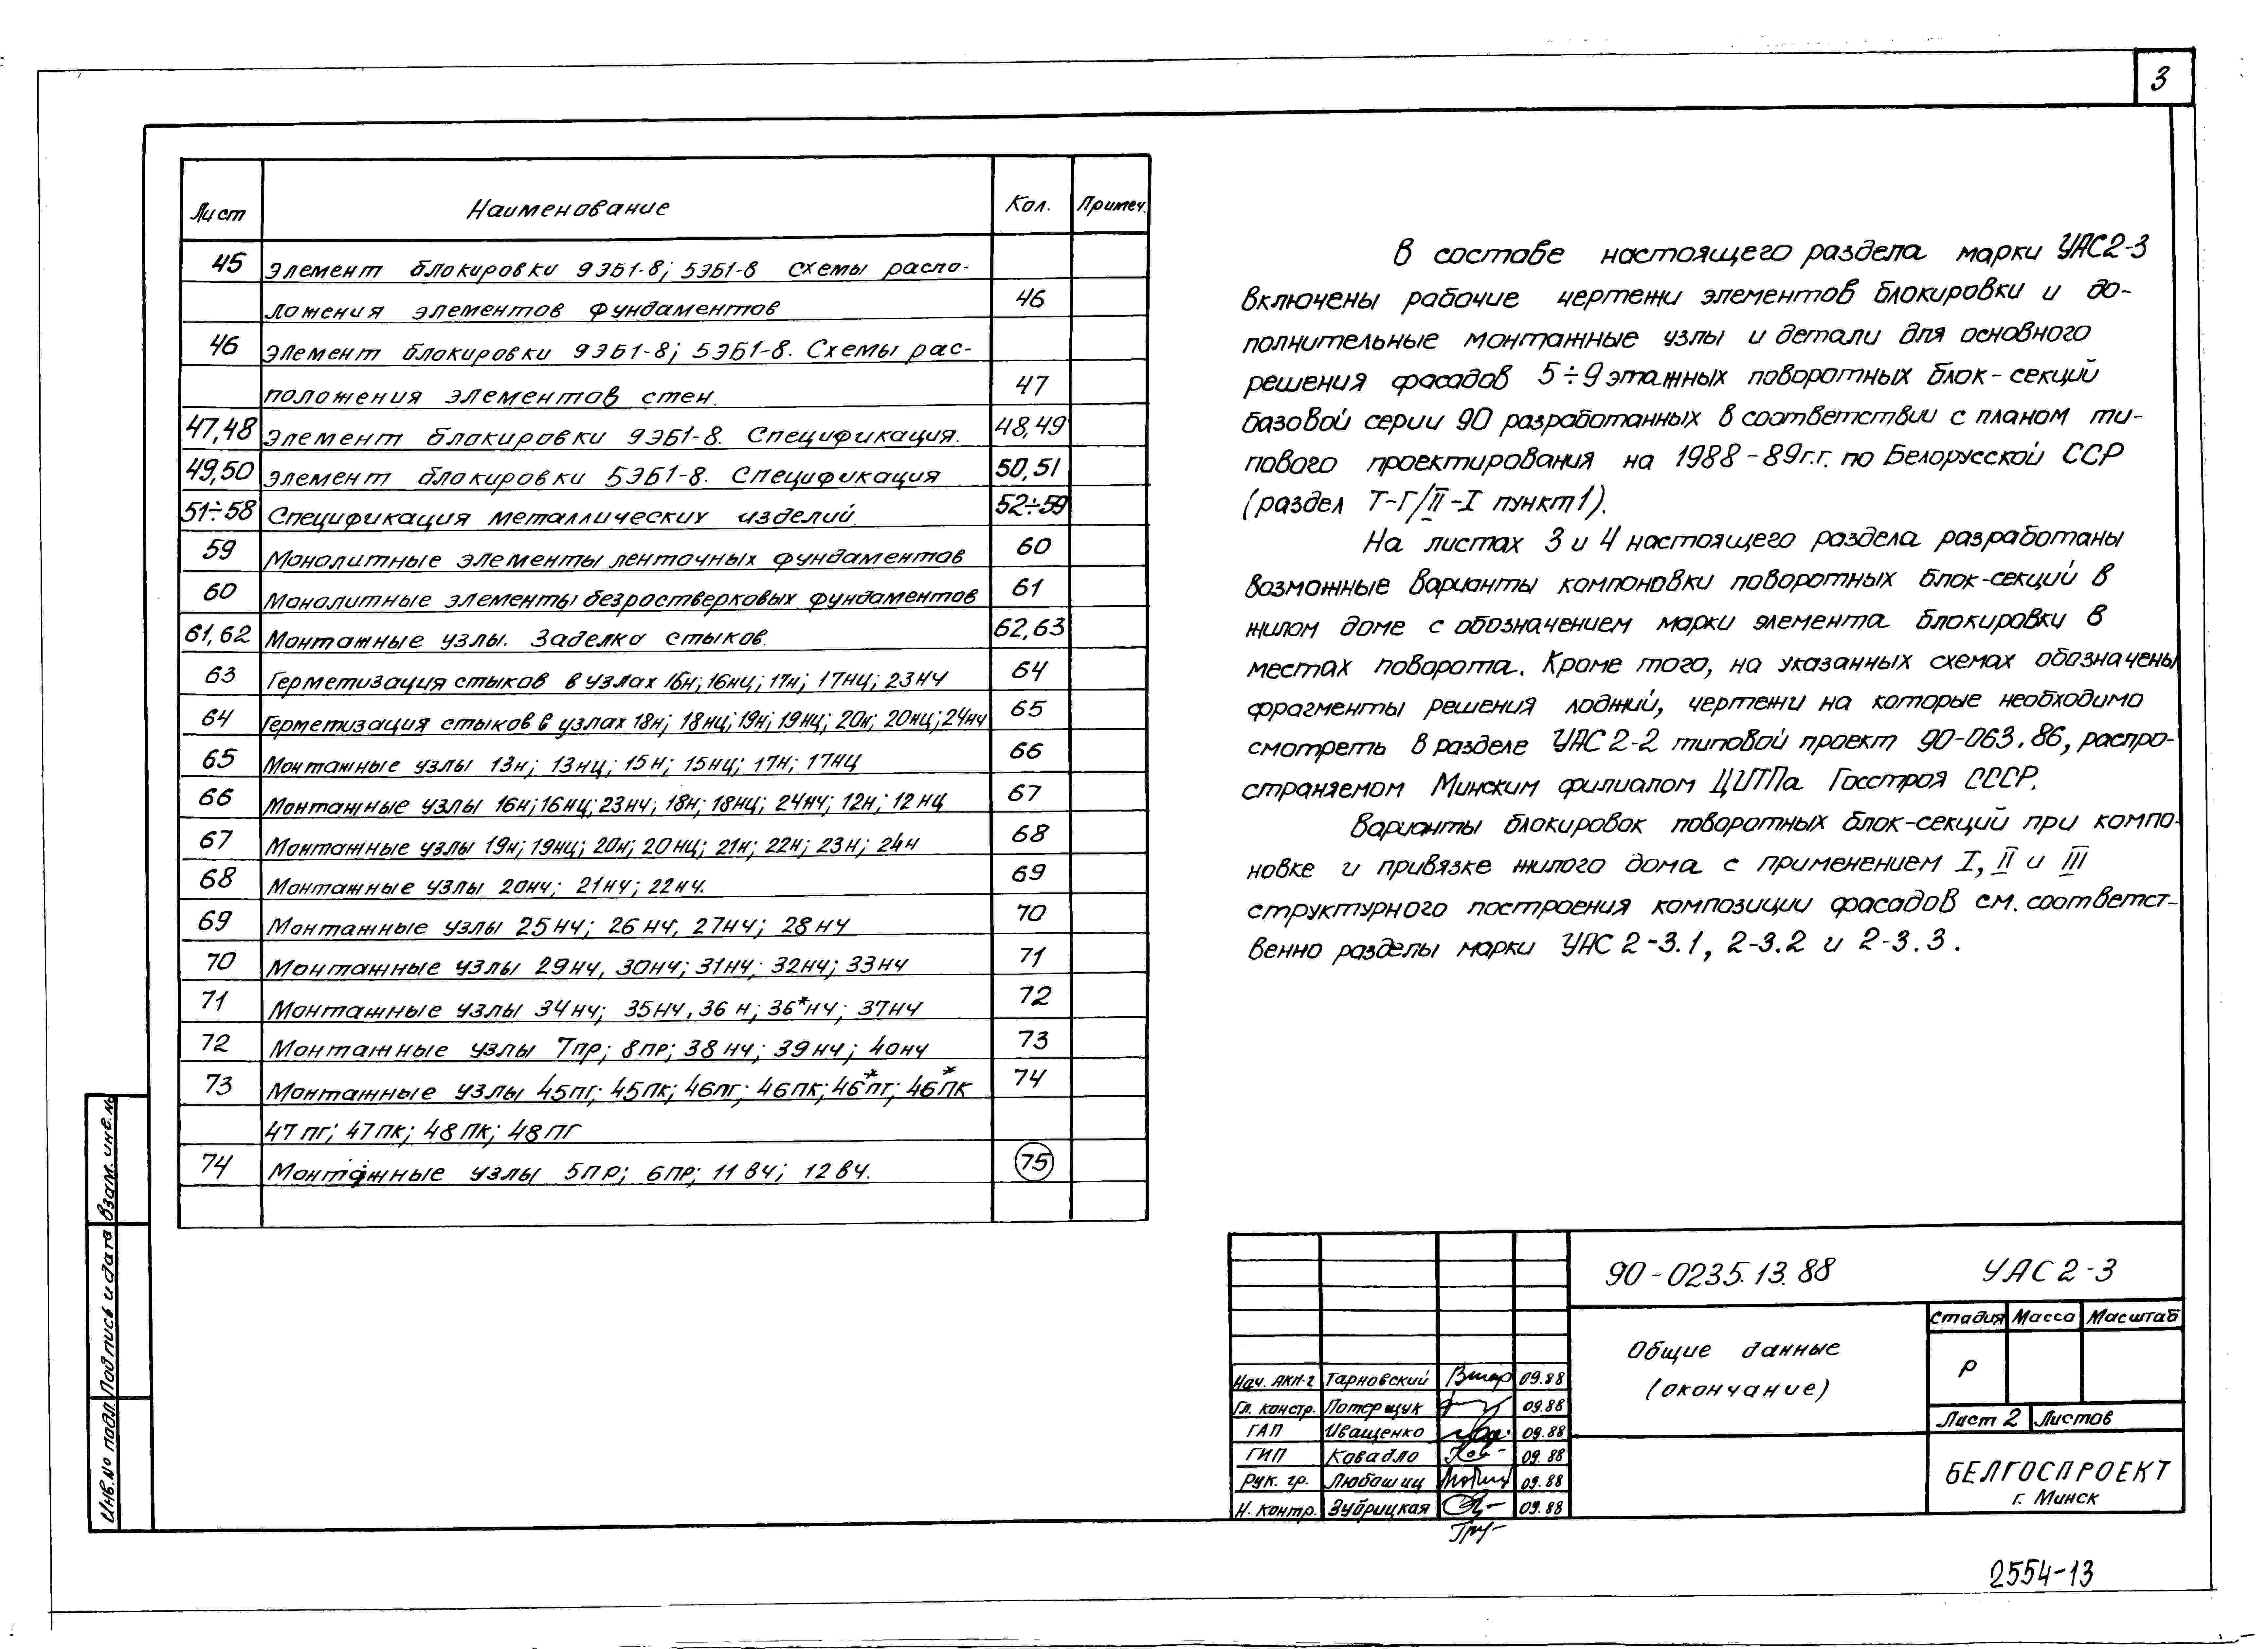 3
Лист Наименование Кол. Примеч.
45 Элемент блокировки 9ЭБ1-8; 5ЭБ1-8 схемы распо-
ложения элементов фундаментов 46
46 Элемент блокировки 9ЭБ1-8; 5ЭБ1-8. Схемы рас-
положения элементов стен. 47
47,48 Элемент блокировки 9ЭБ1-8. Спецификация. 48,49
49,50 Элемент блокировки 5ЭБ1-8. Спецификация 50,51
51÷58 Спецификация металлических изделий. 52÷59
59 Монолитные элементы ленточных фундаментов 60
60 Монолитные элементы безростверковых фундаментов 61
61,62 Монтажные узлы. Заделка стыков. 62,63
63 Герметизация стыков в узлах 16н; 16нц; 17н; 17нц; 23нч 64
64 Герметизация стыков в узлах 18н; 18нц; 19н; 19нц; 20н; 20нц; 24нч 65
65 Монтажные узлы 13н; 13нц; 15н; 15нц; 17н; 17нц 66
66 Монтажные узлы 16н; 16нц; 23нч; 18н; 18нц; 24нч; 12н; 12нц 67
67 Монтажные узлы 19н; 19нц; 20н; 20нц; 21н; 22н; 23н; 24н 68
68 Монтажные узлы 20нч; 21нч; 22нч. 69
69 Монтажные узлы 25нч; 26нч, 27нч; 28нч 70
70 Монтажные узлы 29нч, 30нч; 31нч; 32нч; 33нч 71
71 Монтажные узлы 34нч; 35нч, 36н; 36*нч; 37нч 72
72 Монтажные узлы 7пр; 8пр; 38нч; 39нч; 40нч 73
73 Монтажные узлы 45пг; 45пк; 46пг; 46пк; 46*пг; 46*пк 74
47пг; 47пк; 48пк; 48пг
74 Монтажные узлы 5пр; 6пр; 11вч; 12вч. 75
В составе настоящего раздела марки УАС2-3
включены рабочие чертежи элементов блокировки и до-
полнительные монтажные узлы и детали для основного
решения фасадов 5÷9 этажных поворотных блок-секций
базовой серии 90 разработанных в соответствии с планом ти-
пового проектирования на 1988-89г.г. по Белорусской ССР
(раздел Т-Г/II-I пункт 1).
На листах 3 и 4 настоящего раздела разработаны
возможные варианты компоновки поворотных блок-секций в
жилом доме с обозначением марки элемента блокировки в
местах поворота. Кроме того, на указанных схемах обозначены
фрагменты решения лоджий, чертежи на которые необходимо
смотреть в разделе УАС 2-2 типовой проект 90-063.86, распро-
страняемом Минским филиалом ЦИТПа Госстроя СССР.
Варианты блокировок поворотных блок-секций при компо-
новке и привязке жилого дома с применением I, II и III
структурного построения композиции фасадов см. соответст-
венно разделы марки УАС 2-3.1, 2-3.2 и 2-3.3.
Взам. инв.№
Подпись и дата
Инв.№ подл.
90-0235.13.88 УАС 2-3
Общие данные
(окончание)
Стадия Масса Масштаб
Р
Лист 2 Листов
БЕЛГОСПРОЕКТ
г. Минск
Нач. АКМ-2 Тарновский 09.88
Гл. констр. Потерщук 09.88
ГАП Иващенко 09.88
ГИП Ковадло 09.88
Рук. гр. Любошиц 09.88
Н. контр. Зубрицкая 09.88
2554-13